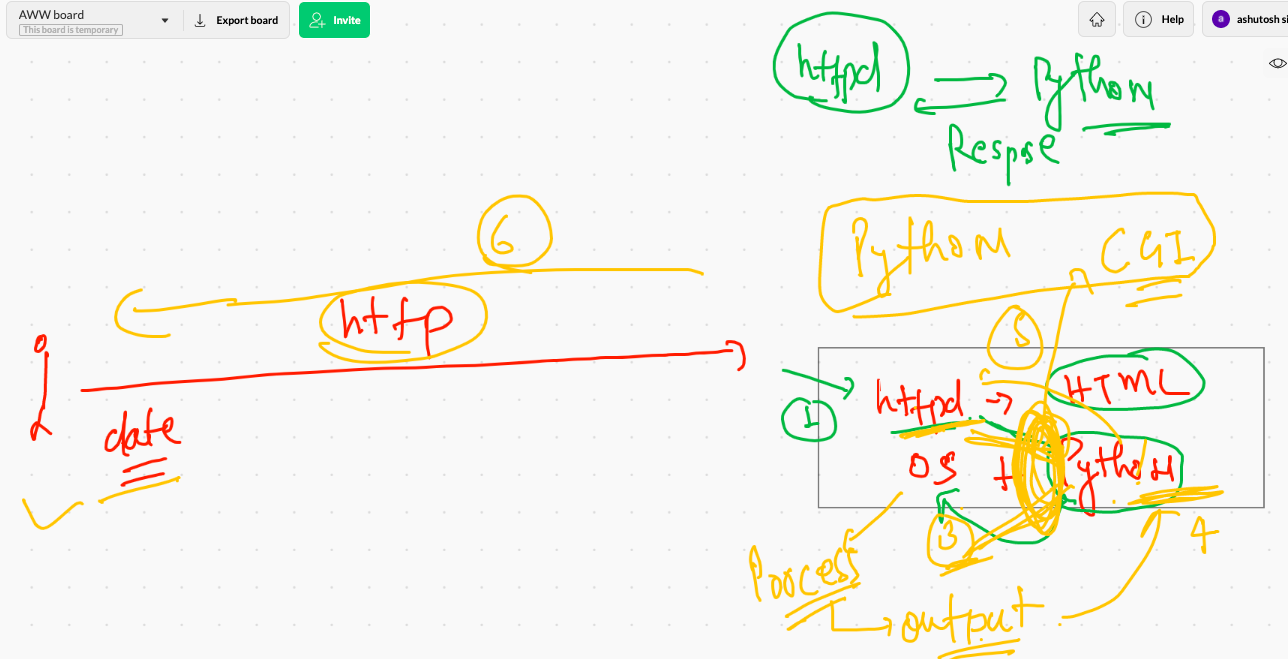 AWW board
This board is temporary
Export board
Invite
Help
a
ashutosh si
httpd
Python
Respose
Python CGI
6
http
date
1
5
httpd → HTML
OS + Python
3
4
Process
output